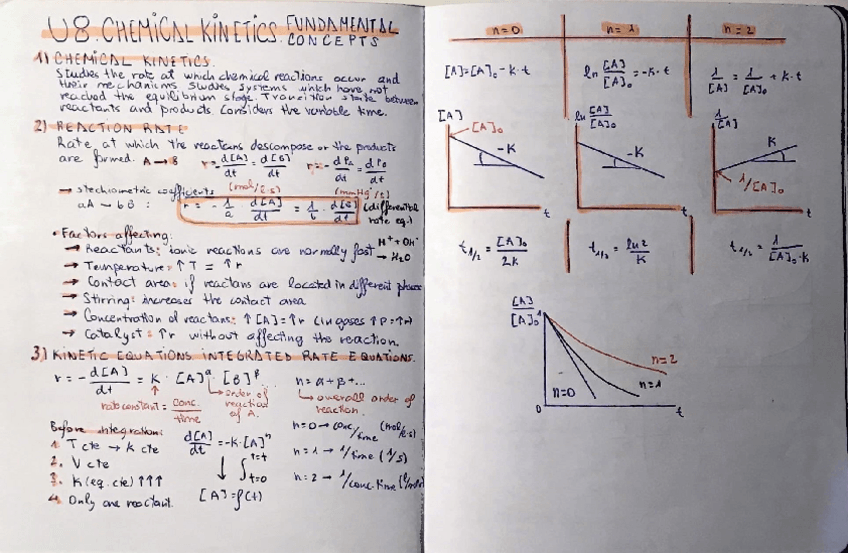 U8 CHEMICAL KINETICS. FUNDAMENTAL CONCEPTS
1) CHEMICAL KINETICS.
Studies the rate at which chemical reactions occur and
their mechanisms. Studies systems which have not
reached the equilibrium stage. Transition state between
reactants and products. Considers the variable time.
2) REACTION RATE
Rate at which the reactans descompose or the products
are formed. A → B r = -d[A]/dt = d[B]/dt r = -dPA/dt = dPB/dt
→ stechiometric coefficients (mol/l·s) (mmHg/t)
aA → bB : r = -1/a · d[A]/dt = 1/b · d[B]/dt (differential rate eq.)
• Factors affecting:
→ Reactants: ionic reactions are normally fast H⁺ + OH⁻ → H₂O
→ Temperature: ↑T = ↑r
→ Contact area: if reactans are located in different phase
→ Stirring: increases the contact area
→ Concentration of reactans: ↑[A] = ↑r (in gases ↑P = ↑r)
→ Catalyst: ↑r without affecting the reaction.
3) KINETIC EQUATIONS INTEGRATED RATE EQUATIONS.
r = -d[A]/dt = K · [A]^α · [B]^β n = α + β + ...
rate constant = conc./time
order of reaction of A.
overall order of reaction.
Before integration:
1. T cte → K cte
2. V cte
3. K (eq. cte) ↑↑↑
4. Only one reactant.
d[A]/dt = -K·[A]ⁿ
↓ ∫ t=t t=0
[A] = f(t)
n=0 → conc/time (mol/l·s)
n=1 → 1/time (1/s)
n=2 → 1/conc·time
n=0 n=1 n=2
[A]=[A]₀ - K·t ln [A]/[A]₀ = -K·t 1/[A] = 1/[A]₀ + K·t
[A] ln [A]/[A]₀ 1/[A]
[A]₀ -K -K K
1/[A]₀
t t t
t₁/₂ = [A]₀/2K t₁/₂ = ln2/K t₁/₂ = 1/[A]₀·K
[A]/[A]₀
1
n=2
n=1
n=0
0 t